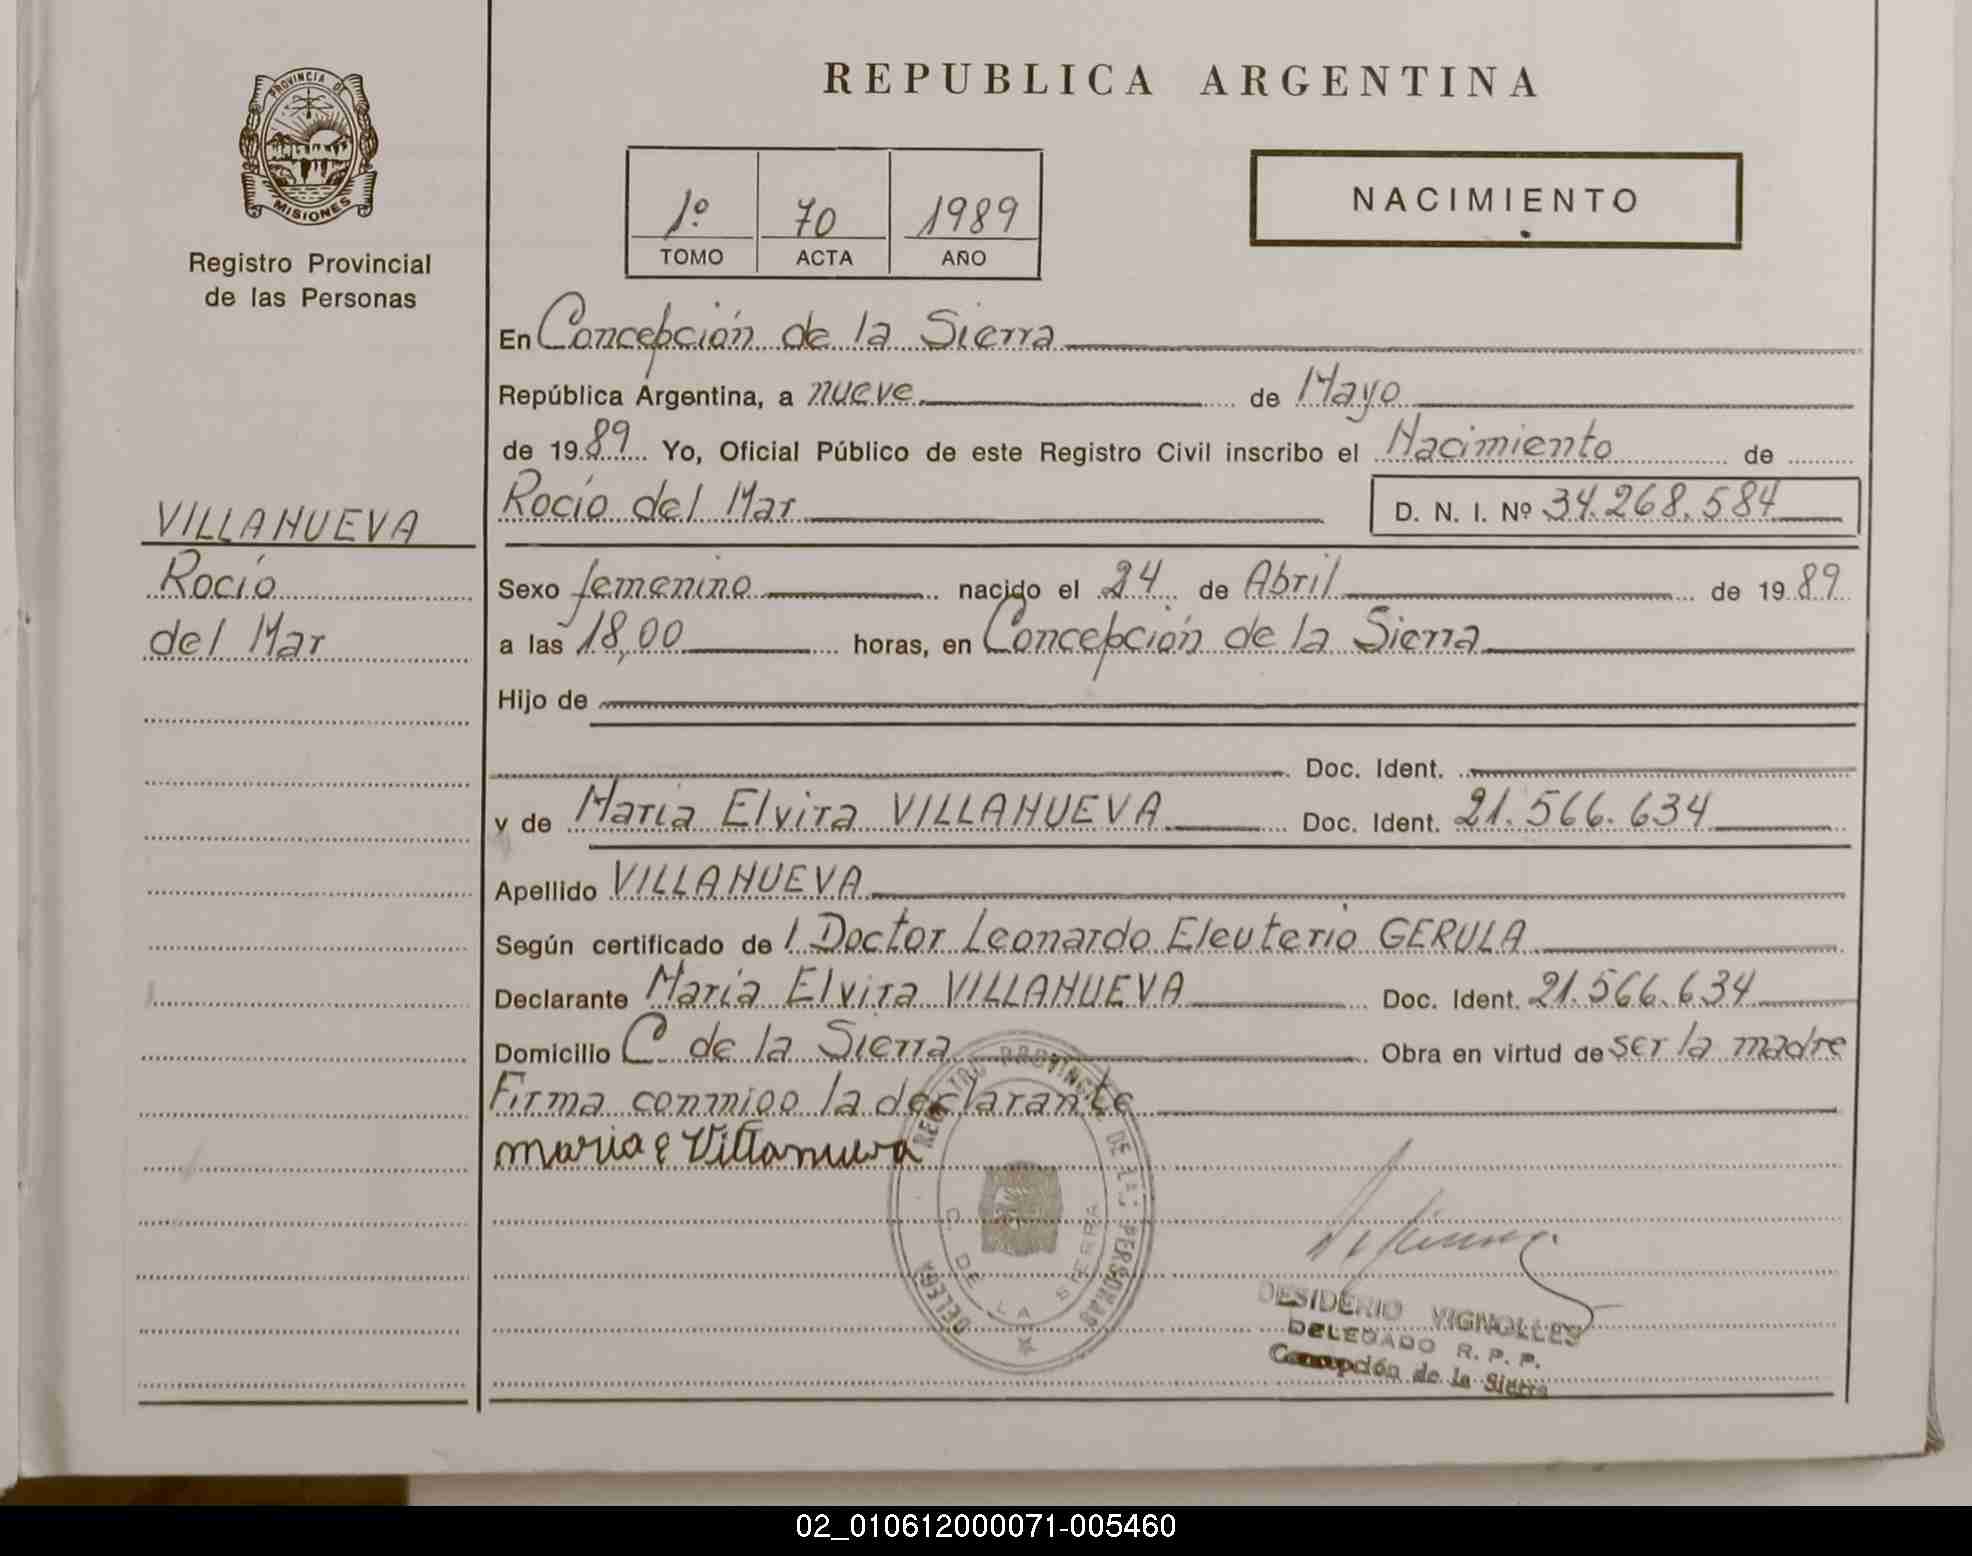 PROVINCIA DE
MISIONES
Registro Provincial
de las Personas
VILLANUEVA
Rocío
del Mar
REPUBLICA ARGENTINA
1º 70 1989
TOMO ACTA AÑO
NACIMIENTO
En Concepción de la Sierra
República Argentina, a nueve de Mayo
de 1989 Yo, Oficial Público de este Registro Civil inscribo el Nacimiento de
Rocío del Mar D. N. I. Nº 34.268.584
Sexo femenino nacido el 24 de Abril de 1989
a las 18,00 horas, en Concepción de la Sierra
Hijo de
Doc. Ident.
y de María Elvira VILLANUEVA Doc. Ident. 21.566.634
Apellido VILLANUEVA
Según certificado de l Doctor Leonardo Eleuterio GERULA
Declarante María Elvira VILLANUEVA Doc. Ident. 21.566.634
Domicilio C. de la Sierra Obra en virtud de ser la madre
Firma conmigo la declarante
maria e Villanueva
REGISTRO PROVINCIAL DE LAS PERSONAS
DELEG
C. DE LA SIERRA
DESIDERIO VIGNOLLES
DELEGADO R. P. P.
Concepción de la Sierra
02_010612000071-005460